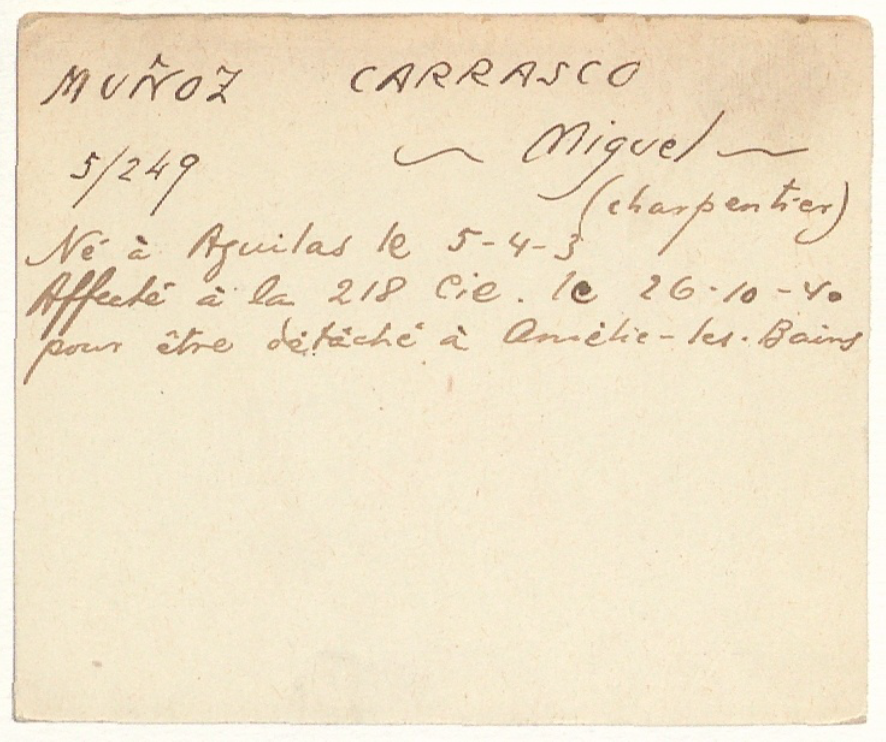 MUÑOZ CARRASCO
5/249 ~ Miguel ~
(charpentier)
Né à Aguilas le 5-4-3
Affecté à la 218 Cie. le 26-10-40
pour être détâché à Amélie-les-Bains